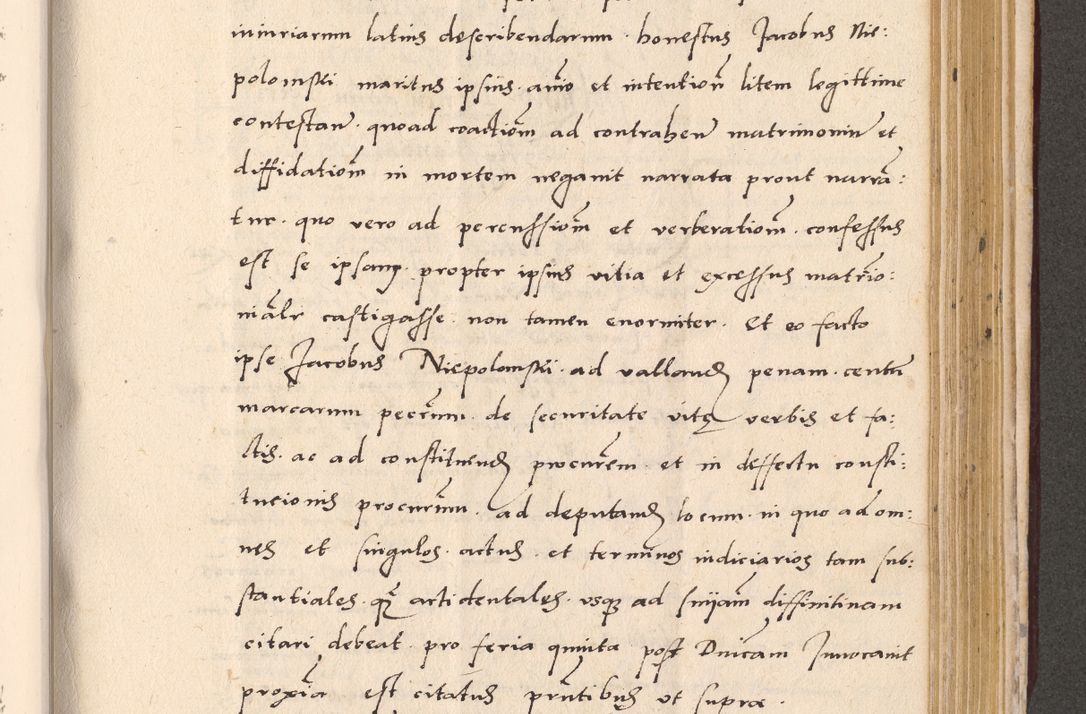 iniuriarum latius describendarum. honestus Jacobus Nie:
polomski maritus ipsius. aīo et intentioñ litem legittime
contestañ. quoad coactiom̄ ad contraheñ matrimonium et
diffidatiom̄ in mortem negauit narrata prout narrā:
tur. quo vero ad percussiom̄ et verberatiom̄. confessus
est se ipsam. propter ipsius vitia et excessus matrīo:
niālr castigasse. non tamen enormiter. Et eo facto
ipse Jacobus Niepolomski. ad vallandꝫ penam. centū
marcarum pecūm. de securitate vitę verbis et fa:
ctis. ac ad constituendꝫ procurēm. et in deffectu consti:
tucionis procurūm. ad deputandꝫ locum. in quo ad om:
nes et singulos. actus. et terminos iudiciarios tam sub:
stantiales. qꝫ accidentales. vsqꝫ ad sniām diffinitiuam
citari debeat. pro feria quinta post Dnīcam Inuocauit
proxīa est citatus prūtibus vt supra.